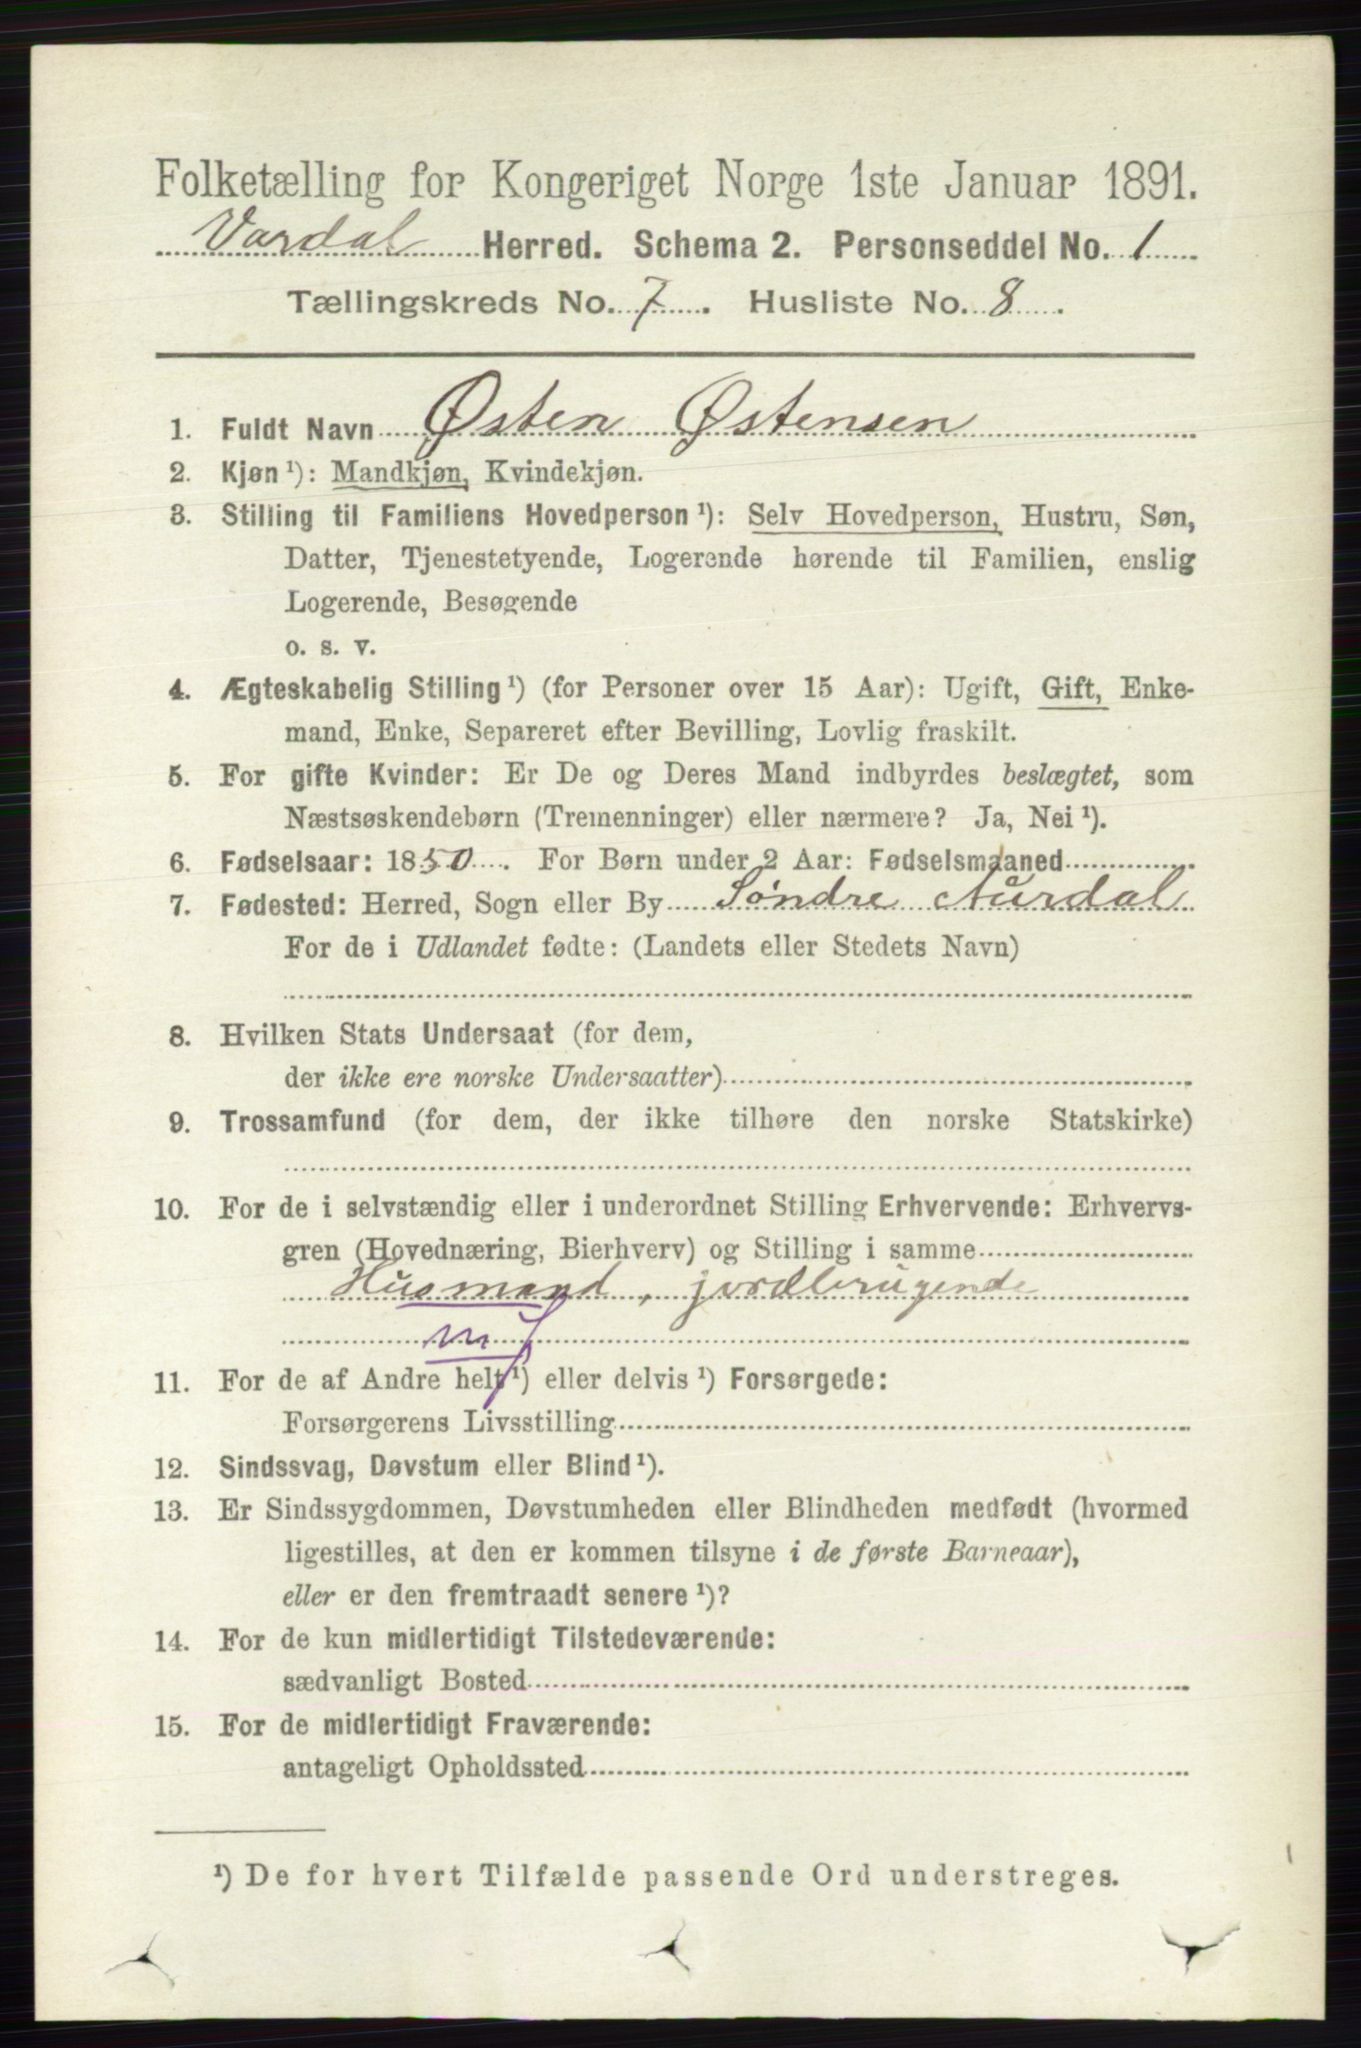 Folketælling for Kongeriget Norge 1ste Januar 1891.
Vardal Herred. Schema 2. Personseddel No. 1
Tællingskreds No. 7. Husliste No. 8.
1. Fuldt Navn Østen Østensen
2. Kjøn ¹): Mandkjøn, Kvindekjøn.
3. Stilling til Familiens Hovedperson ¹): Selv Hovedperson, Hustru, Søn,
Datter, Tjenestetyende, Logerende hørende til Familien, enslig
Logerende, Besøgende
o. s. v.
4. Ægteskabelig Stilling ¹) (for Personer over 15 Aar): Ugift, Gift, Enke-
mand, Enke, Separeret efter Bevilling, Lovlig fraskilt.
5. For gifte Kvinder: Er De og Deres Mand indbyrdes beslægtet, som
Næstsøskendebørn (Tremenninger) eller nærmere? Ja, Nei ¹).
6. Fødselsaar: 1850. For Børn under 2 Aar: Fødselsmaaned
7. Fødested: Herred, Sogn eller By Søndre Aurdal
For de i Udlandet fødte: (Landets eller Stedets Navn)
8. Hvilken Stats Undersaat (for dem,
der ikke ere norske Undersaatter)
9. Trossamfund (for dem, der ikke tilhøre den norske Statskirke)
10. For de i selvstændig eller i underordnet Stilling Erhvervende: Erhvervs-
gren (Hovednæring, Bierhverv) og Stilling i samme
Husmand, jordbrugende
mf
11. For de af Andre helt ¹) eller delvis ¹) Forsørgede:
Forsørgerens Livsstilling
12. Sindssvag, Døvstum eller Blind ¹).
13. Er Sindssygdommen, Døvstumheden eller Blindheden medfødt (hvormed
ligestilles, at den er kommen tilsyne i de første Barneaar),
eller er den fremtraadt senere ¹)?
14. For de kun midlertidigt Tilstedeværende:
sædvanligt Bosted
15. For de midlertidigt Fraværende:
antageligt Opholdssted
¹) De for hvert Tilfælde passende Ord understreges.